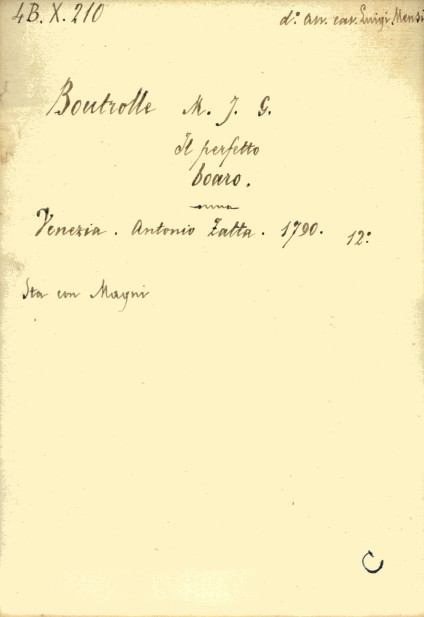 4B. X. 210
d.º Avv. cav. Luigi Mensi
Boutrolle M. J. G.
Il perfetto
boaro.
Venezia. Antonio Zatta. 1790. 12º
Sta con Magni
C